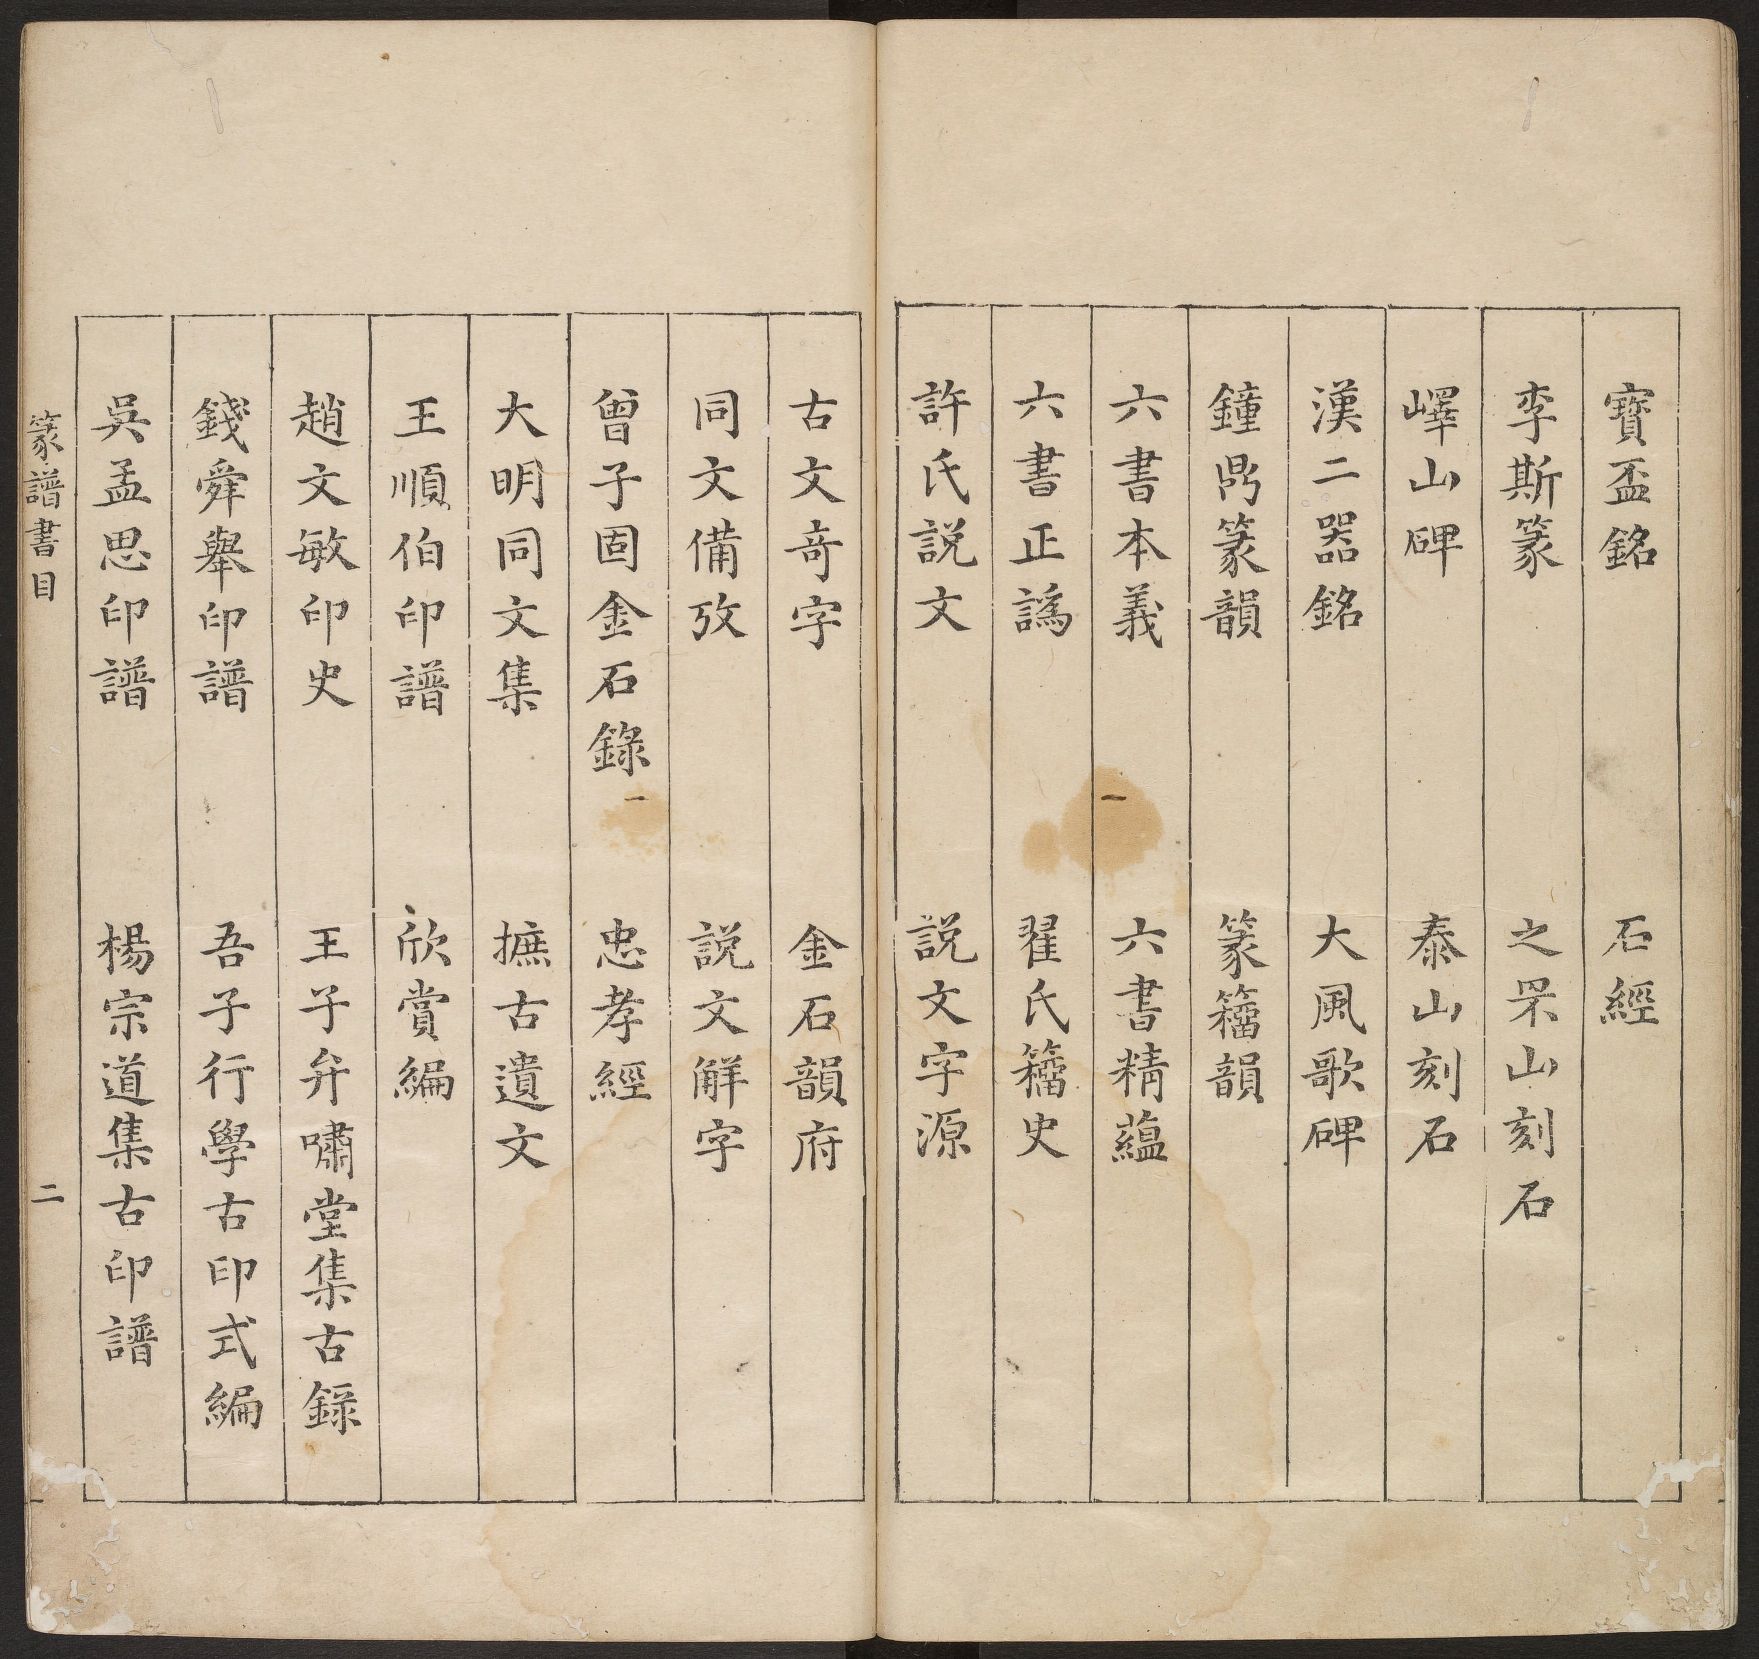 寶盃銘 石經
李斯篆 之罘山刻石
嶧山碑 泰山刻石
漢二器銘 大風歌碑
鐘鼎篆韻 篆籀韻
六書本義 六書精蘊
六書正譌 翟氏籀史
許氏説文 説文字源
古文奇字 金石韻府
同文備攷 説文解字
曾子固金石錄 忠孝經
大明同文集 摭古遺文
王順伯印譜 欣賞編
趙文敏印史 王子弁嘯堂集古錄
錢舜舉印譜 吾子行學古印式編
吳孟思印譜 楊宗道集古印譜
篆譜書目 二